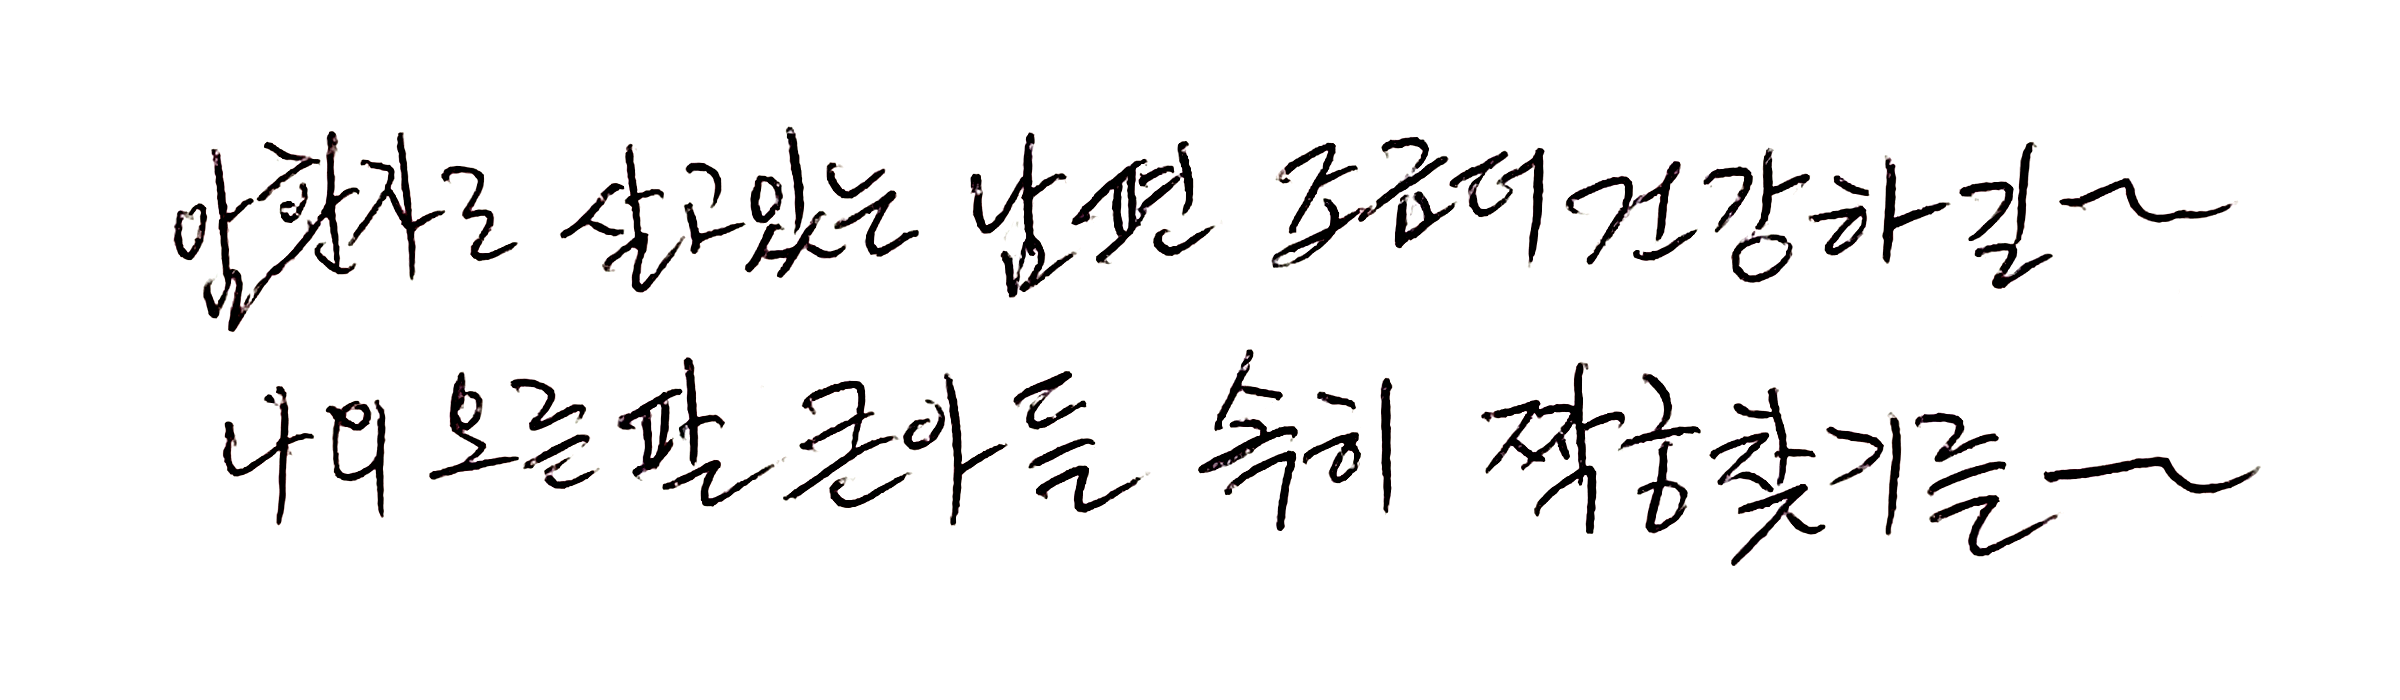 암환자로 살고있는 남편 조금더 건강하길~
나의 오른팔 큰아들 속히 짝궁찾기를~